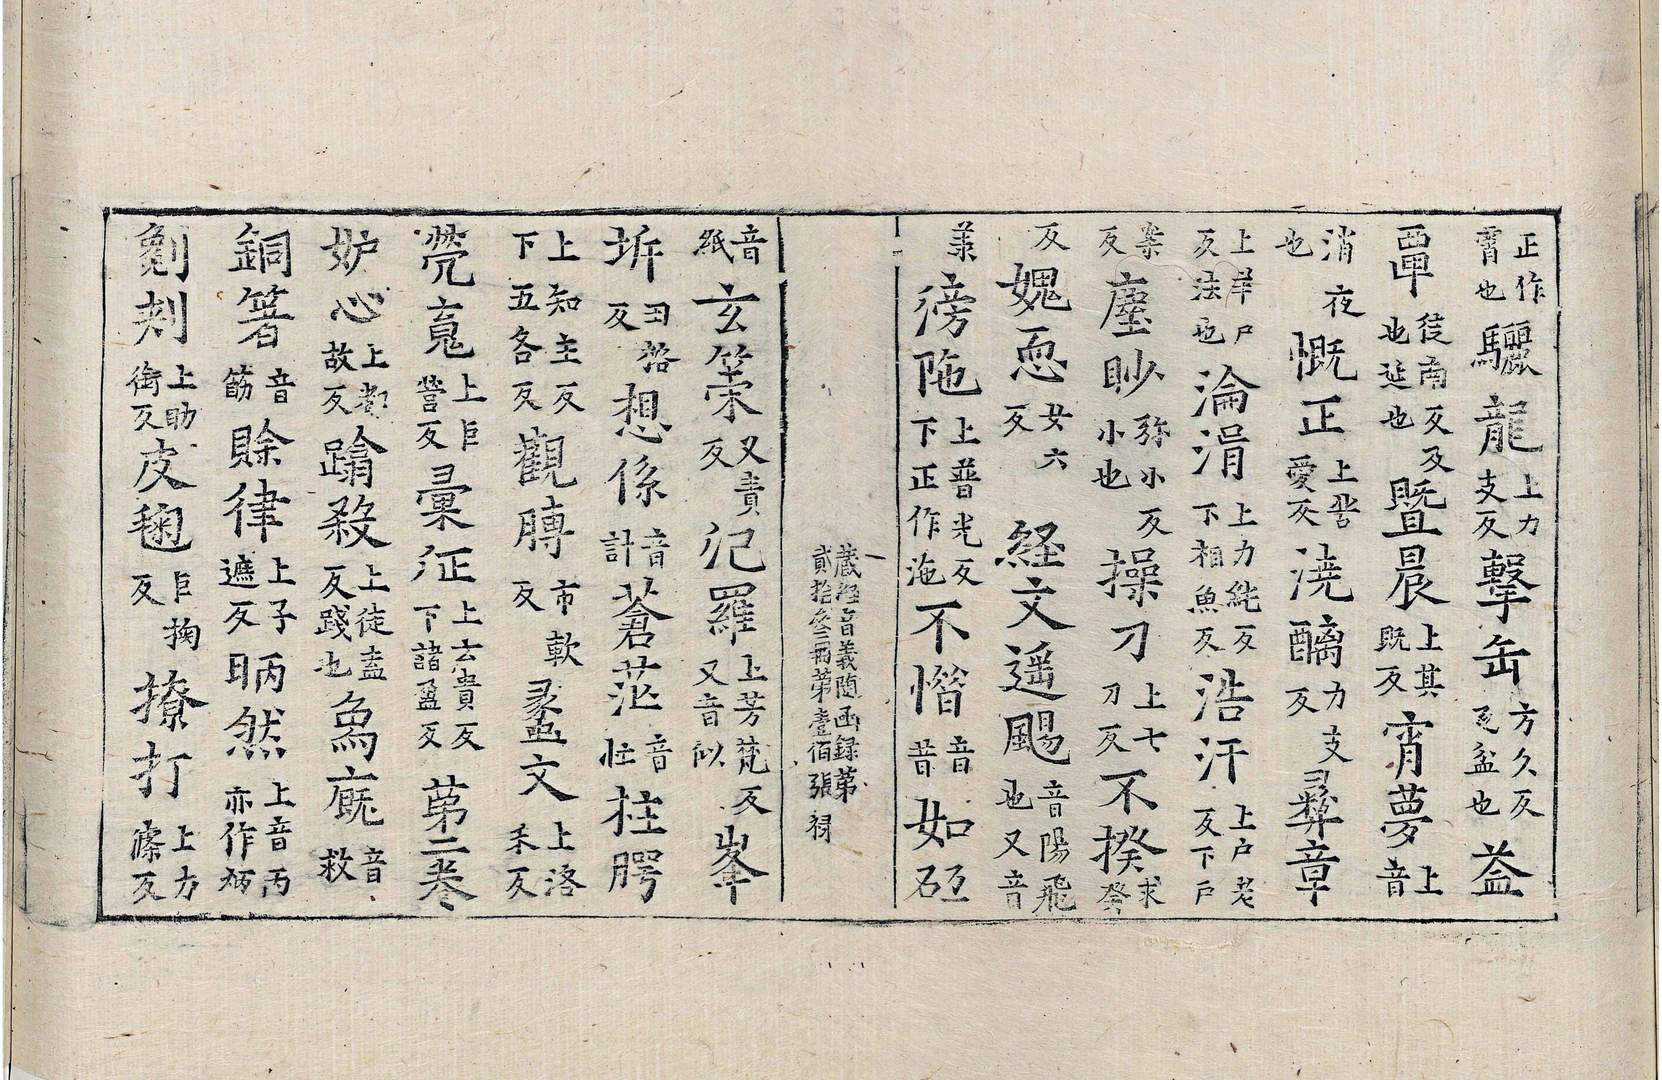 正作霄也驪龍上力支反擊缶方久反瓦盆也益
覃徒南反及也延也暨晨上其既反宵夢上音
消夜也慨正上苦愛反澆醨力支反彝章
上羊尸反法也淪涓上力純反下相魚反浩汗上户老反下户
案反塵眇弥小反小也操刀上七刀反不揆求癸
反媿恧女六反経文遥颺音陽飛也又音
㨾傍陁上普光反下正作沲不惛音昔如砳
藏経音義随函録第貳拾叄冊第壹佰張禄
音紙玄筞又責反氾羅上芳梵反又音似峯
坼反想係音計蒼茫音拄腭
上知主反下五各反觀膊市軟反蠡文上洛禾反
煢嵬上巨營反彙征上云貴反下諸盈反第二卷
妒心上都故反蹹殺上徒盍反踐也為廐音救
銅箸音筯賒律上子遮反昞然上音丙亦作炳
剗刾上助銜反皮毱巨掬反撩打上力療反